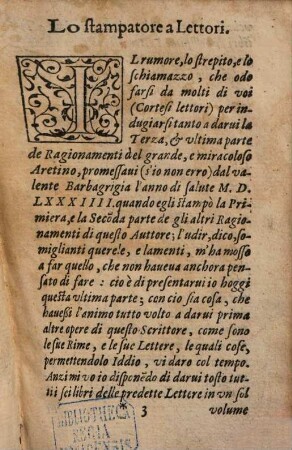 Lo stampatore a Lettori.
IL rumore, lo strepito, e lo
schiamazzo, che odo
farsi da molti di voi
(Cortesi lettori) per in-
dugiarsi tanto a darui la
Terza, & vltima parte
de Ragionamenti del grande, e miracoloso
Aretino, promessaui (s'io non erro) dal va-
lente Barbagrigia l'anno di salute M. D.
LXXXIIII. quando egli stāpò la Pri-
miera, e la Secōda parte de gli altri Ragio-
namenti di questo Auttore; l'udir, dico, so-
miglianti querele, e lamenti, m'ha mosso
a far quello, che non haueua anchora pen-
sato di fare: cio è di presentarui io hoggi
questa vltima parte; con cio sia cosa, che
hauessi l'animo tutto volto a darui prima
altre opere di questo Scrittore, come sono
le sue Rime, e le sue Lettere, le quali cose,
permettendolo Iddio, vi darò col tempo.
Anzi mi vo io disponēdo di darui tosto tut-
ti i sei libri delle predette Lettere in vn sol
3 volume
BIBLIOTHECA
REGIA
MONACENSIS